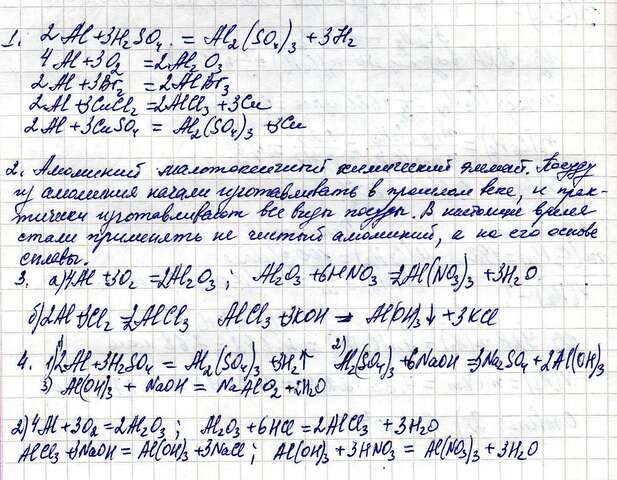 1. 2Al+3H₂SO₄ = Al₂(SO₄)₃ +3H₂
4Al+3O₂ =2Al₂O₃
2Al+3Br₂ =2AlBr₃
2Al+3CuCl₂ =2AlCl₃ +3Cu
2Al+3CuSO₄ = Al₂(SO₄)₃ +3Cu
2. Алюминий малотоксичный химический элемент. Посуду
из алюминия начали изготавливать в прошлом веке, и прак-
тически изготавливают все виды посуды. В настоящее время
стали применять не чистый алюминий, а на его основе
сплавы.
3. а) 4Al+3O₂ =2Al₂O₃ ; Al₂O₃ +6HNO₃ =2Al(NO₃)₃ +3H₂O
б) 2Al+3Cl₂ =2AlCl₃ AlCl₃ +3KOH → Al(OH)₃↓ +3KCl
4. 1) 1) 2Al+3H₂SO₄ = Al₂(SO₄)₃ +3H₂↑ 2) Al₂(SO₄)₃ +6NaOH =3Na₂SO₄ +2Al(OH)₃
3) Al(OH)₃ + NaOH = NaAlO₂ +2H₂O
2) 4Al+3O₂=2Al₂O₃ ; Al₂O₃+6HCl=2AlCl₃ +3H₂O
AlCl₃+3NaOH = Al(OH)₃+3NaCl ; Al(OH)₃ +3HNO₃ = Al(NO₃)₃ +3H₂O